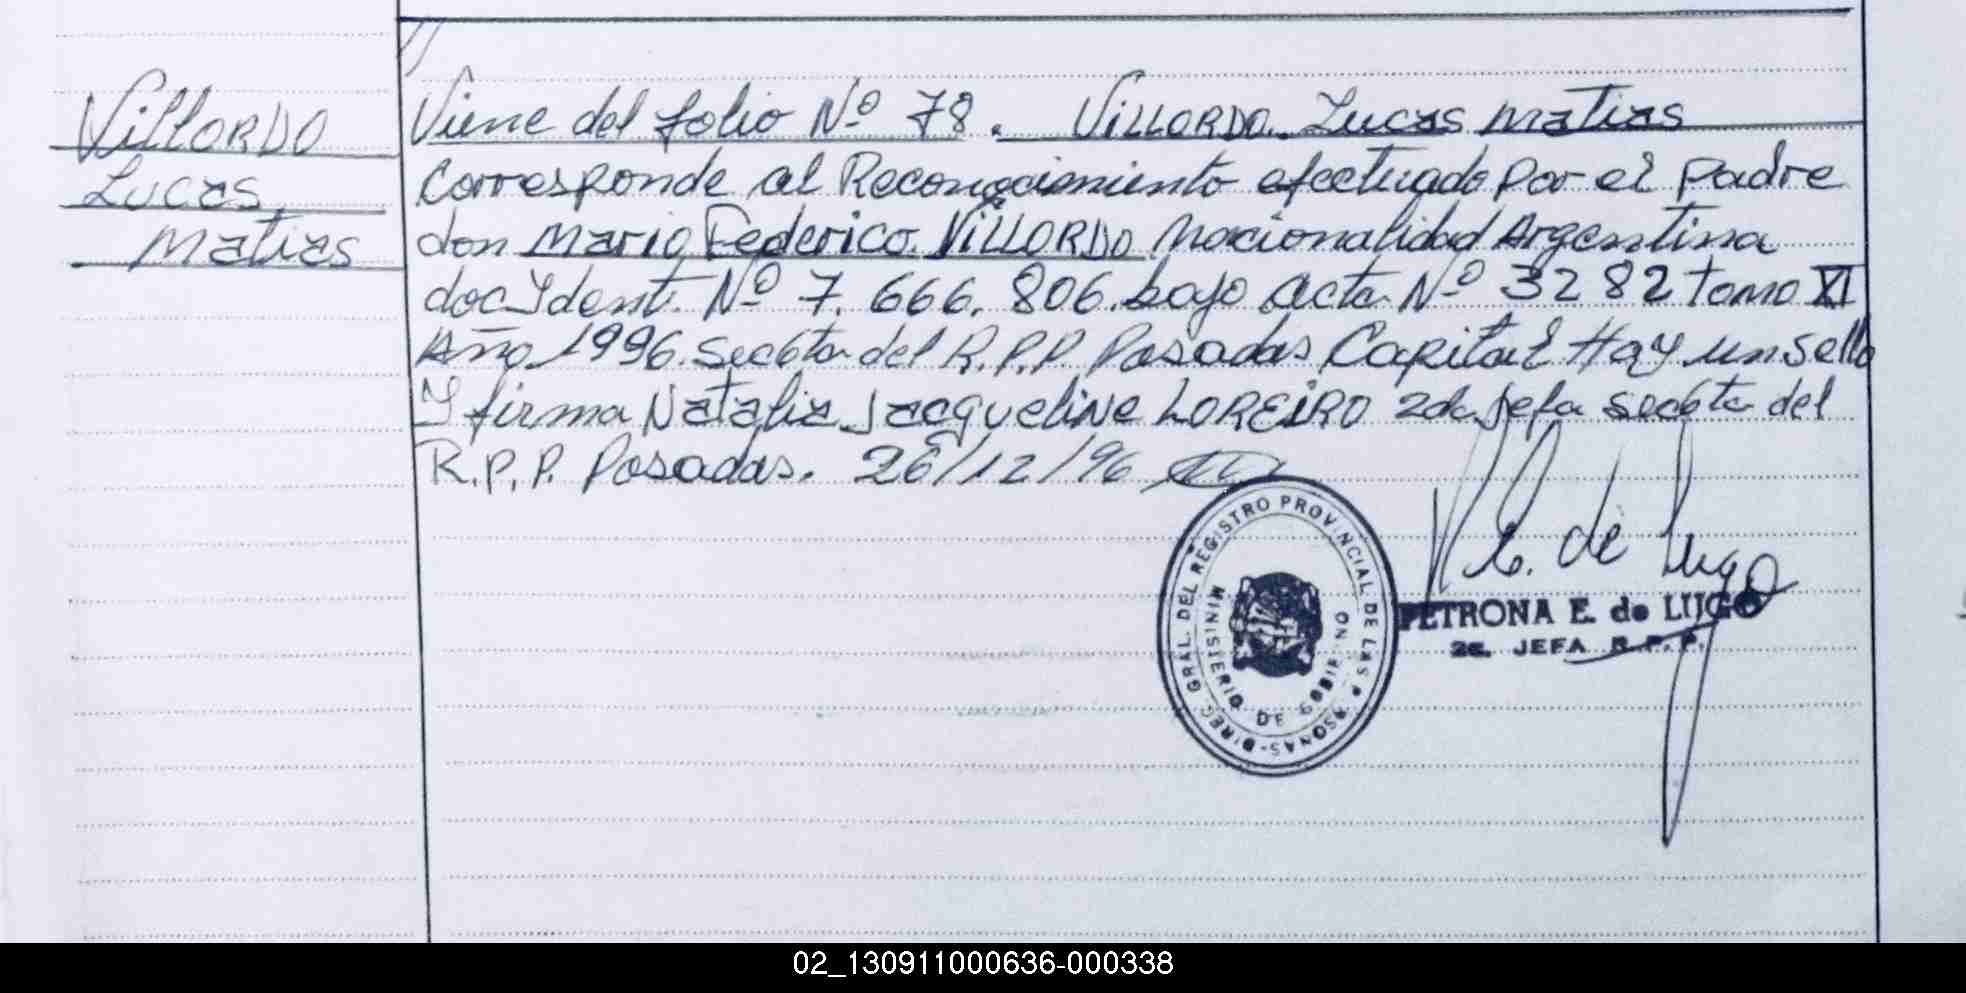 VILLORDO
Lucas
Matias
Viene del folio Nº 78. VILLORDO Lucas Matias
Corresponde al Reconocimiento efectuado por el padre
don Mario Federico VILLORDO Nacionalidad Argentina
doc Ydent. Nº 7.666.806 bajo acta Nº 3282 tomo XI
Año 1996. Secc 6ta del R.P.P. Posadas Capital Hay un sello
Y firma Natalia Jacqueline LOREIRO 2da Jefa Secc 6ta del
R.P.P. Posadas. 26/12/96
P.E. de Lugo
PETRONA E. de LUGO
2a. JEFA R.P.P.
DIREC. GRAL. DEL REGISTRO PROVINCIAL DE LAS PERSONAS-
MINISTERIO DE GOBIERNO
02_130911000636-000338